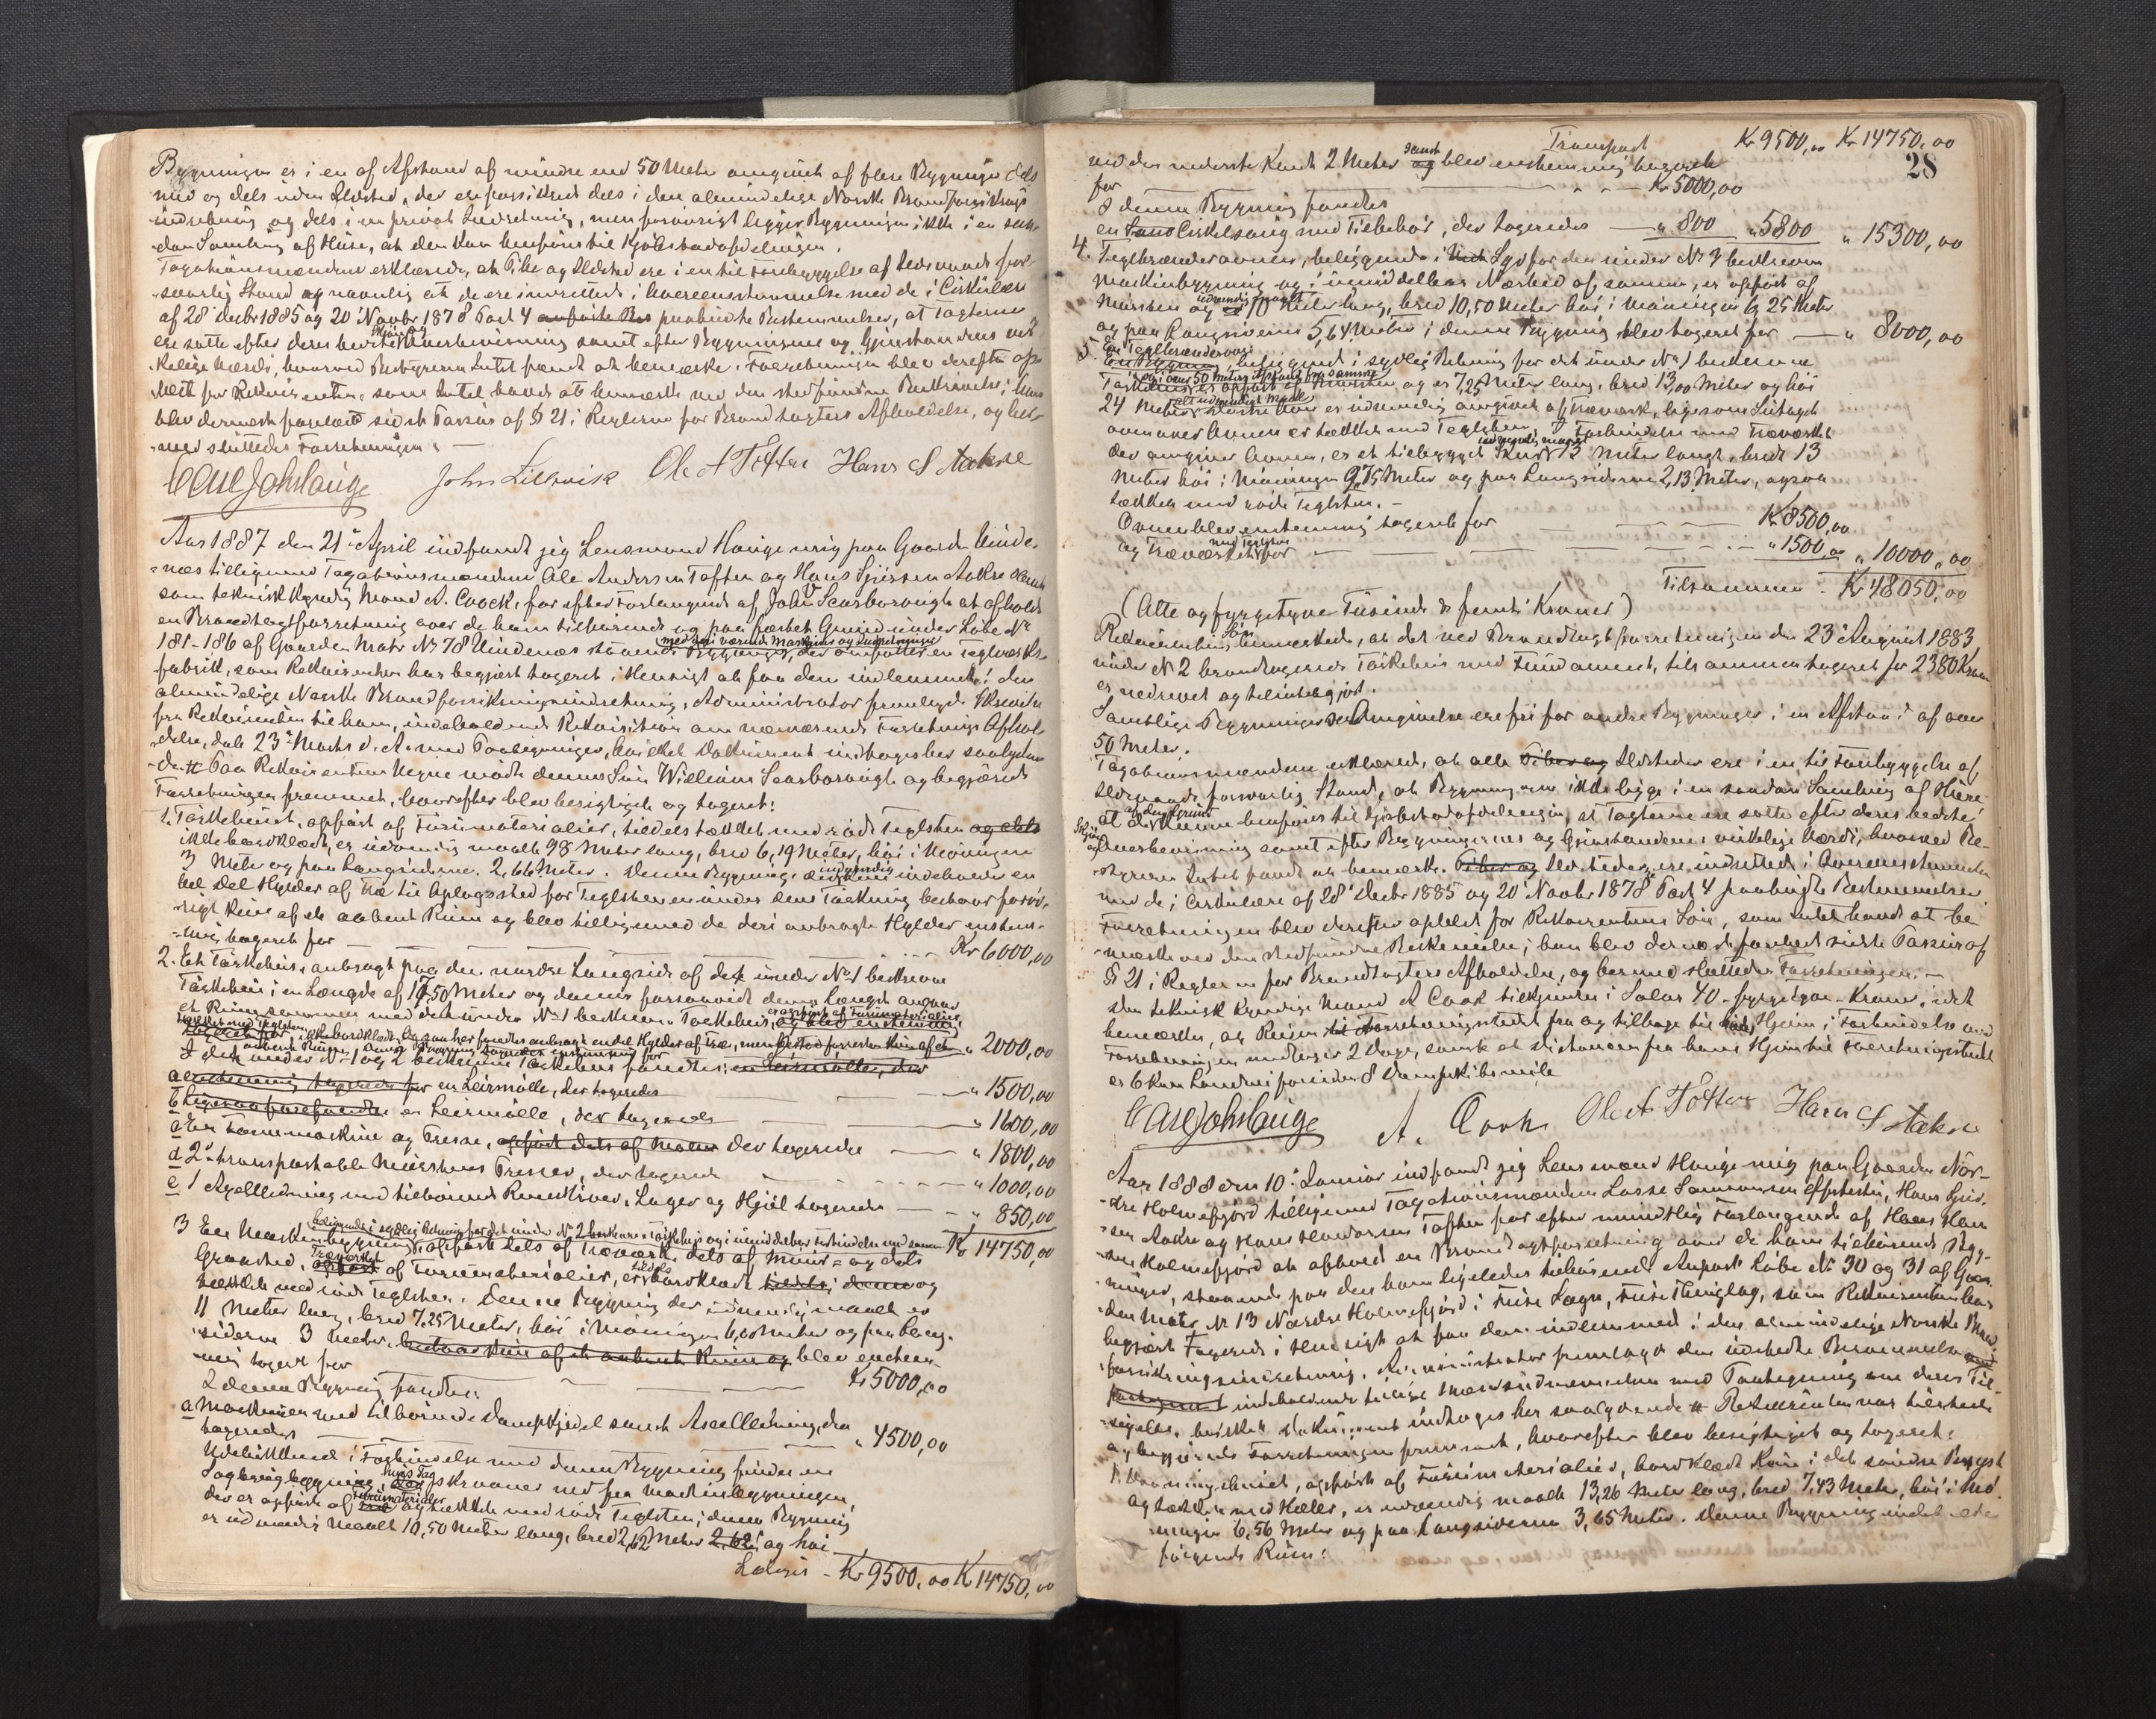 Bygningen er i en af Afstand af mindre end 50 Meter omgivet af flere Bygninger dels
med og dels uden Ildsted, der ere forsikrede dels i den almindelige Norske Brandforsikrings
indretning og dels i en privat Indretning, men forøvrigt ligger Bygningen ikke i en saa-
dan Samling af Huse, at den kan henføres til Kjøbstadafdelingen.
Taxationsmændene erklærede, at Pibe og Ildsted ere i en til Forebyggelse af Ildsvaade for-
svarlig Stand og navnlig at de ere indrettede i Overeensstemmelse med de i Cirkulære
af 28 Decbr 1885 og 20 Novbr 1878 Post 4 paabudte Bestemmelser, at Taxterne
ere satte efter deres bedste Skjøn og Overbeviisning samt efter Bygningernes og Gjenstandenes vir-
kelige Værdi, hvorved Bestyreren Intet fandt at bemærke. Forretningen blev derefter op-
læst for Rekvirenten, som Intet havde at bemærke ved den stedfundne Beskrivelse; han
blev dernæst forelæst sidste Passus af § 21 i Reglerne for Brandtaxters Afholdelse, og her-
med sluttedes Forretningen.
Carl Johs Hauge John Lillevik Ole A Tofte Hans S Aakre
Aar 1887 den 21 April indfandt jeg Lensmand Hauge mig paa Gaarden Vinde-
næs tilligemed Taxationsmændene Ole Andersen Toften og Hans Sjursen Aakre samt
som teknisk kyndig Mand A. Coock, for efter Forlangende af John Scarborough at afholde
en Brandtaxtforretning over de ham tilhørende og paa fæstet Grund under Løbe No
185-186 af Gaarden Matr No 78 Vindenæs staaende Bygninger med deri værende Maskiner og Indretninger, der omfatter en Teglværks-
fabrik, som Rekvirenten har begjært taxeret i Hensigt at faa dem indlemmet i den
almindelige Norske Brandforsikringsindretning. Administrator fremlagde Skrivelse
fra Rekvirenten til ham, indeholdende Rekvisition om nærværende Forretnings Afhol-
delse, dat. 23 Marts d. A. med Paategninger, hvilket Dokument indtages her saalyden-
de: # Paa Rekvirentens Vegne mødte dennes Søn William Scarborough og begjærede
Forretningen fremmet, hvorefter blev besigtiget og taxeret:
1. Tørkehuset, opført af Furumaterialier, tildels tækket med røde Teglsten og dels
ikke bordklædt, er udvendig maalt 98 Meter lang, bred 6,19 Meter, høi i Møningen
3 Meter og paa Langsiderne 2,66 Meter. Denne Bygning indvendig indeholder en
hel Del Hylder af Træ til Oplagssted for Teglstenen under dens Tørkning bestaar forøv-
rigt kun af et aabent Rum og blev tilligemed de deri anbragte Hylder enstem-
mig taxeret for Kr 6000,00
2. Et Tørkehus, anbragt paa den nordre Langside af det under No 1 beskrevne
Tørkehus i en Længde af 17,50 Meter og danner forsaavidt denne Længde angaar
et Rum sammen med det under No 1 beskrevne Tørkehus, er opført af Furumaterialier,
tækket med Teglsten, ikke bordklædt, ligesaa her fandtes anbragt endel Hylder af Træ, men bestod forresten kun af et
aabent Rum. Denne Bygning taxeredes enstemmig for " 2000,00
I det under No 1 og 2 beskrevne Tørkehus fandtes: en Leirmølle, der
a enstemmig taxeredes for en Leirmølle, der taxeredes " 1500,00
b Ligesaa forefandtes en Leirmølle, der taxeredes " 1600,00
c En Formemaskine og Presse, opført dels af Malm der taxeredes " 1800,00
d 2 transportable Murstens Presser, der taxeredes " 1000,00
e 1 Axelledning med tilhørende Remskiver, Lager og Hjul taxeredes " 850,00
Kr 14750,00
3 En Maskinbygning beliggende i sydlig Retning for det under No 2 beskrevne Tørkehus og i umiddelbar Forbindelse med samme
opført dels af Træværk dels af Muur- og dels
Graasten. Træværket opført af Furumaterialier, er tildels bordklædt og
tækket med røde Teglsten. Denne Bygning der udvendig maalt er
11 Meter lang, bred 7,25 Meter, høi i Møningen 6,00 Meter og paa Lang-
siderne 3 Meter, bestaar kun af et aabent Rum og blev enstem-
mig taxeret for Kr 5000,00
I denne Bygning fandtes:
a Maskinen med tilhørende Dampkjedel samt Axelledning, der
taxeredes " 4500,00
Udstikkende i Forbindelse med denne Bygning findes en
Sagbrugbygning hvis Tag skraaner ned fra Maskinbygningen,
der er opført af Furumaterialier og tækket med røde Teglsten; denne Bygning
er udvendig maalt 10,50 Meter lang, bred 2,62 Meter 2,62 og høi
Lateris - Kr 9500,00 Kr 14750,00
28
Transport Kr 9500,00 Kr 14750,00
ved den nederste Kant 2 Meter samt blev enstemmig taxeret
for Kr 5000,00
I denne Bygning fandtes
en Cirkelsaug med Tilbehør, der taxeredes " 800 " 5800 " 15300,00
4. Teglbrænderovnen, beliggende i Syd for den under No 3 beskrevne
Maskinbygning og i umiddelbar Nærhed af samme, er opført af
Mursten og udvendig maalt 10 Meter lang, bred 10,50 Meter høi i Møningen 6,25 Meter
og paa Langsiderne 5,64 Meter; denne Bygning blev taxeret for " 8000,00
5. En Teglbrænderovn, beliggende i sydlig Retning for det under No 1 beskrevne
Tørkehus og i over 50 Meters Afstand fra samme er opført af Mursten og er 7,25 Meter lang, bred 13,00 Meter og høi
24 Meter alt udvendigt Maal er udvendig omgivet af Træværk, ligesom Luftaget
ovenover Ovnen er tækket med Teglsten; I Forbindelse med Træværket
der omgiver Ovnen, er et tilbygget Skur udvendig maalt 13 Meter langt, bredt 13
Meter høi i Møningen 9,75 Meter og paa Langsiderne 2,13 Meter, ogsaa
tækket med røde Teglsten. -
Ovnen blev enstemmig taxeret for Kr 8500,00
og Træværket med Teglsten for " 1500,00 " 10000,00
Tilsammen Kr 48050,00
(Otte og fyrgetyve Tusinde & femti Kroner)
Rekvirentens Søn bemærkede, at det ved Brandtaxtforretningen den 23 August 1883
under No 2 brandtaxerede Tørkehus med Fundament, tilsammen taxeret for 2380 Kroner
er nedrevet og tilintetgjort.
Samtlige Bygningers Omgivelser ere fri for andre Bygninger i en Afstand af over
50 Meter.
Taxationsmændene erklærede, at alle Piber og Ildsteder ere i en til Forebyggelse af
Ildsvaade forsvarlig Stand, at Bygningerne ikke ligge i en saadan Samling af Huse
at de af den Grund kunne henføres til Kjøbstadafdelingen, at Taxterne ere satte efter deres bedste
Skjøn og Overbevisning samt efter Bygningernes og Gjenstandenes virkelige Værdi, hvorved Be-
styreren Intet fandt at bemærke. Piber og Ildstederne ere indrettede i Overensstemmelse
med de i Cirkulære af 28 Decbr 1885 og 20 Novbr 1878 Post 4 paabudte Bestemmelser
Forretningen blev derefter oplæst for Rekvirentens Søn, som Intet havde at be-
mærke ved den stedfundne Beskrivelse; han blev dernæst forelæst sidste Passus af
§ 21 i Reglerne for Brandtaxters Afholdelse, og hermed sluttedes Forretningen. -
Den teknisk kyndige Mand A Cook tilkjendes i Salær 40 - fyrgetyve - Kroner, idet
bemærkes, at Reisen til Forretningsstedet fra og tilbage til hans Hjem i Forbindelse med
Forretningen medtager 2 Dage, samt at Distancen fra hans Hjem til Forretningsstedet
er 6 Km Landvei foruden 8 Dampskibsmile
Carl Johs Hauge A. Cook Ole A Tofte Hans S Aakre
Aar 1888 den 10 Januar indfandt jeg Lensmand Hauge mig paa Gaarden Nor-
dre Holmefjord tilligemed Taxationsmændene Lasse Samsonsen Eftestøl, Hans Sjur-
sen Aakre og Hans Toften for efter mundtlig Forlangende af Hans Han-
sen Holmefjord at afholde en Brandtaxtforretning over de ham tilhørende Byg-
ninger, staaende paa den ham ligeledes tilhørende Anpart Løbe No 30 og 31 af Gaar-
den Matr No 13 Nordre Holmefjord i Fuse Sogn, Fuse Thinglag, som Rekvirenten har
begjært taxerede i Hensigt at faa dem indlemmet i den almindelige Norske Brand-
forsikringsindretning. Administrator fremlagde den udstedte Berammelse med
indeholdende tillige Mændsudnævnelsen med Paategning om deres Til-
sigelse, hvilket Dokument indtages her saalydende # Rekvirenten var tilstede
og begjærede Forretningen fremmet, hvorefter blev besigtiget og taxeret:
1. Vaaningshuset, opført af Furumaterialier, bordklædt kun i det søndre Bryst
og tækket med Heller, er udvendig maalt 13,26 Meter lang, bred 7,43 Meter, høi i Mø-
ningen 6,56 Meter og paa Langsiderne 3,65 Meter. Denne Bygning indeholder
følgende Rum: